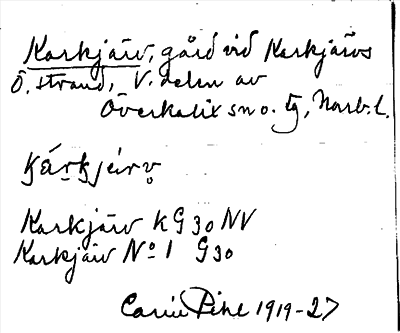 Karkjärv, gård vid Karkjärvs
Ö. strand, V. delen av
Överkalix sn o. tg, Norrb. l.
Karkjärv KG 30 NV
Karkjärv No 1 G 30
Carin Pihl 1919-27